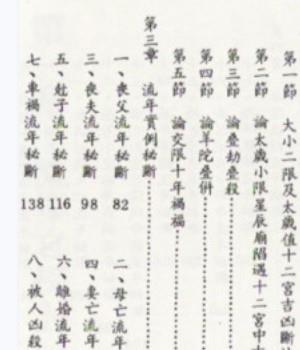 第一節 大小二限及太歲值十二宮吉凶斷
第二節 論太歲小限星辰廟陷遇十二宮中
第三節 論疊劫疊殺
第四節 論羊陀疊併
第五節 論交限十年禍福
第三章 流年實例秘斷
一、喪父流年秘斷 82 二、母亡流年
三、喪夫流年秘斷 98 四、妻亡流年
五、尅子流年秘斷 116 六、離婚流年
七、車禍流年秘斷 138 八、被人凶殺